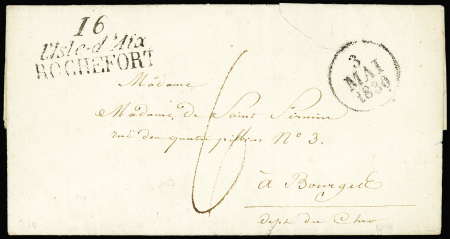 16
l'Isle-d'Aix
ROCHEFORT
3
MAI
1830
Madame
Madame de Saint Firmin
rue des quatre piliers N° 3.
6
à Bourges
dept du Cher